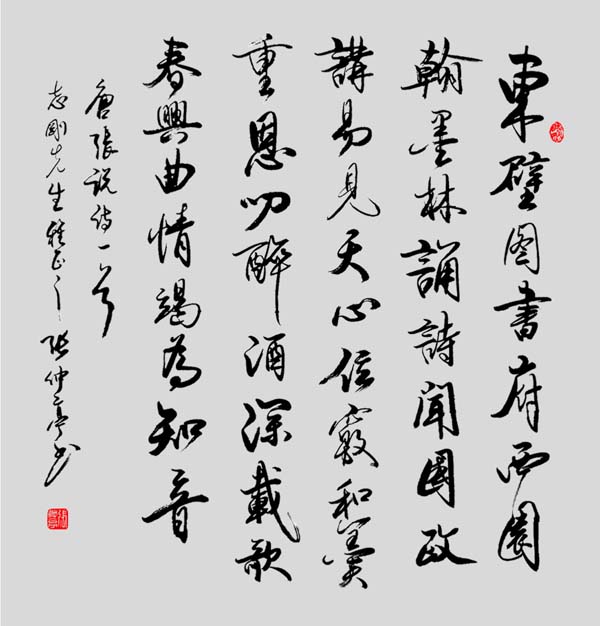 東壁图書府西園
翰墨林誦詩聞國政
講易見天心位竊和羹
重恩叨醉酒深載歌
春興曲情竭為知音
唐張说诗一首
志剛先生雅正之 张仲亭书